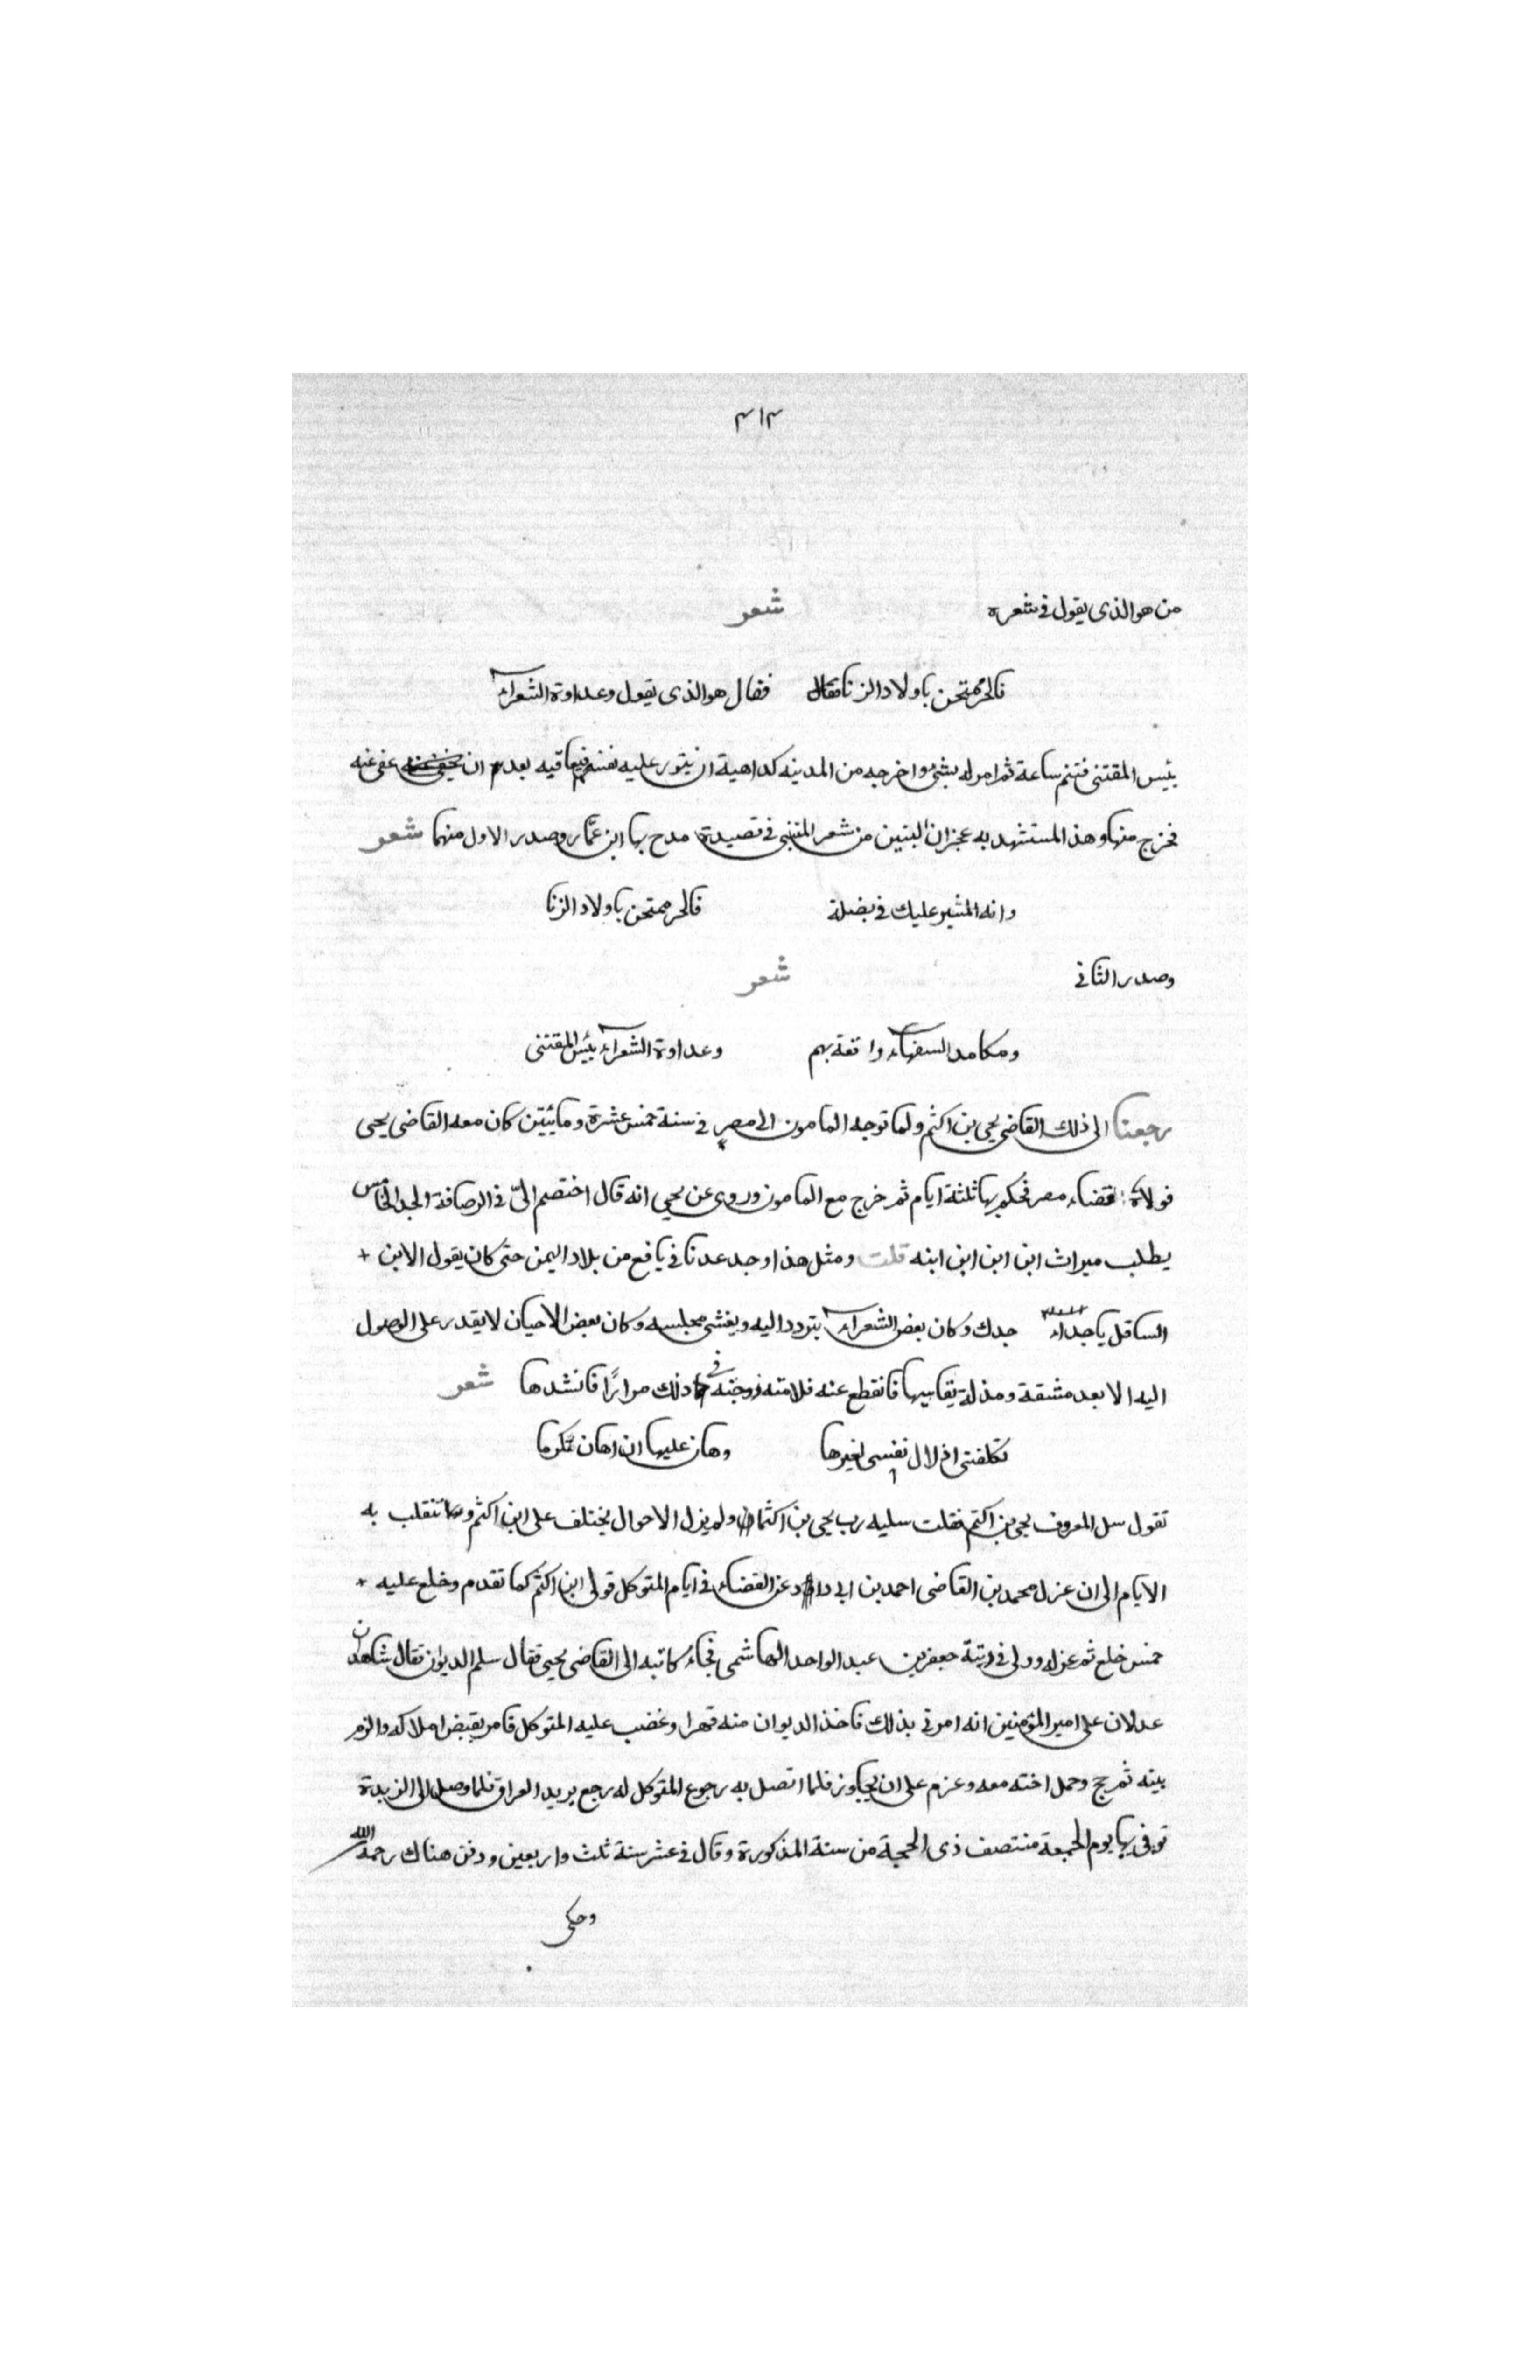 ٣١٣
من هو الذى يقول فى شعره شعر
فالحر ممتحن باولاد الزنا فقال هو الذى يقول وعداوة الشعراء
بئس المقتنى فتنم ساعة ثم امر له بشئ واخرجه من المدينه كداهية ان يتور عليه نفسه فيعاقبه بعد ان عفى عنه
فخرج منها وهذا المستشهد به عجزان البتين من شعر المتنبى فى قصيدة مدح بها ابن عمّار وصدر الاول منهما شعر
وانه المشير عليك فى بضلة فالحر ممتحن باولاد الزنا
وصدر الثانى شعر
ومكامد السفهاء واقعة بهم وعداوة الشعراء بئس المقتنى
رجعنا الى ذلك القاضى يحيى بن اكثم ولما توجه المامون الى مصر فى سنة خمس عشرة ومائيتين كان معه القاضى يحيى
فولاه قضاء مصر فحكم بها ثلثة ايام ثم خرج مع المامون وروى عن يحيى انه قال اختصم الىّ فى الرصافة الجد الخامس
يطلب ميراث ابن ابن ابن ابنه قلت ومثل هذا وجد عدنا فى يافع من بلاد اليمن حتى كان يقول الابن +
السافل يا جداه جدك وكان بعض الشعراء يتودد اليه ويغشى مجلسه وكان بعض الاحيان لا يقدر على الوصول
اليه الا بعد مشقة ومذلة يقاسيها فانقطع عنه فلامته زوجته فى ذلك مرارًا فانشدها شعر
تكلفنى اذلال نفسى لغيرها وهان عليها ان اهان تكرما
تقول سل المعروف يحيى بن اكثم فقلت سليه رب يحيى بن اكثما ولم يزل الاحوال يختلف على ابن اكثم وتنقلب به
الايام الى ان عزل محمد بن القاضى احمد بن ابى داود عن القضاء فى ايام المتوكل فولى ابن اكثم كما تقدم وخلع عليه +
خمس خلع ثم عزله وولى فى رتبة جعفر بن عبد الواحد الهاشمى فجاء كاتبه الى القاضى يحيى فقال سلم الديوان فقال شاهدان
عدلان على امير المؤمنين انه امرنى بذلك فاخذ الديوان منه قهرا وغضب عليه المتوكل فامر بقبض املاكه والزم
بيته ثم حج وحمل اخته معه وعزم على ان يجاور فلما اتصل به رجوع المتوكل له رجع يريد العراق فلما وصل الى الزبدة
توفى بها يوم الجمعة منتصف ذى الحجة من سنة المذكورة وقال فى عشر سنة ثلث واربعين ودفن هناك رحمه الله
وحكى